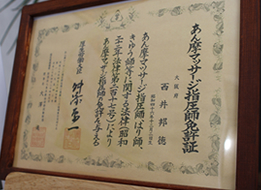 あん摩マツサージ指圧師免許証
大阪府
西井邦徳
あん摩マツサージ指圧師、はり師、
きゆう師等に関する法律(昭和
二十二年法律第二百十七号)により
あん摩マツサージ指圧師の免許を与える
厚生労働大臣